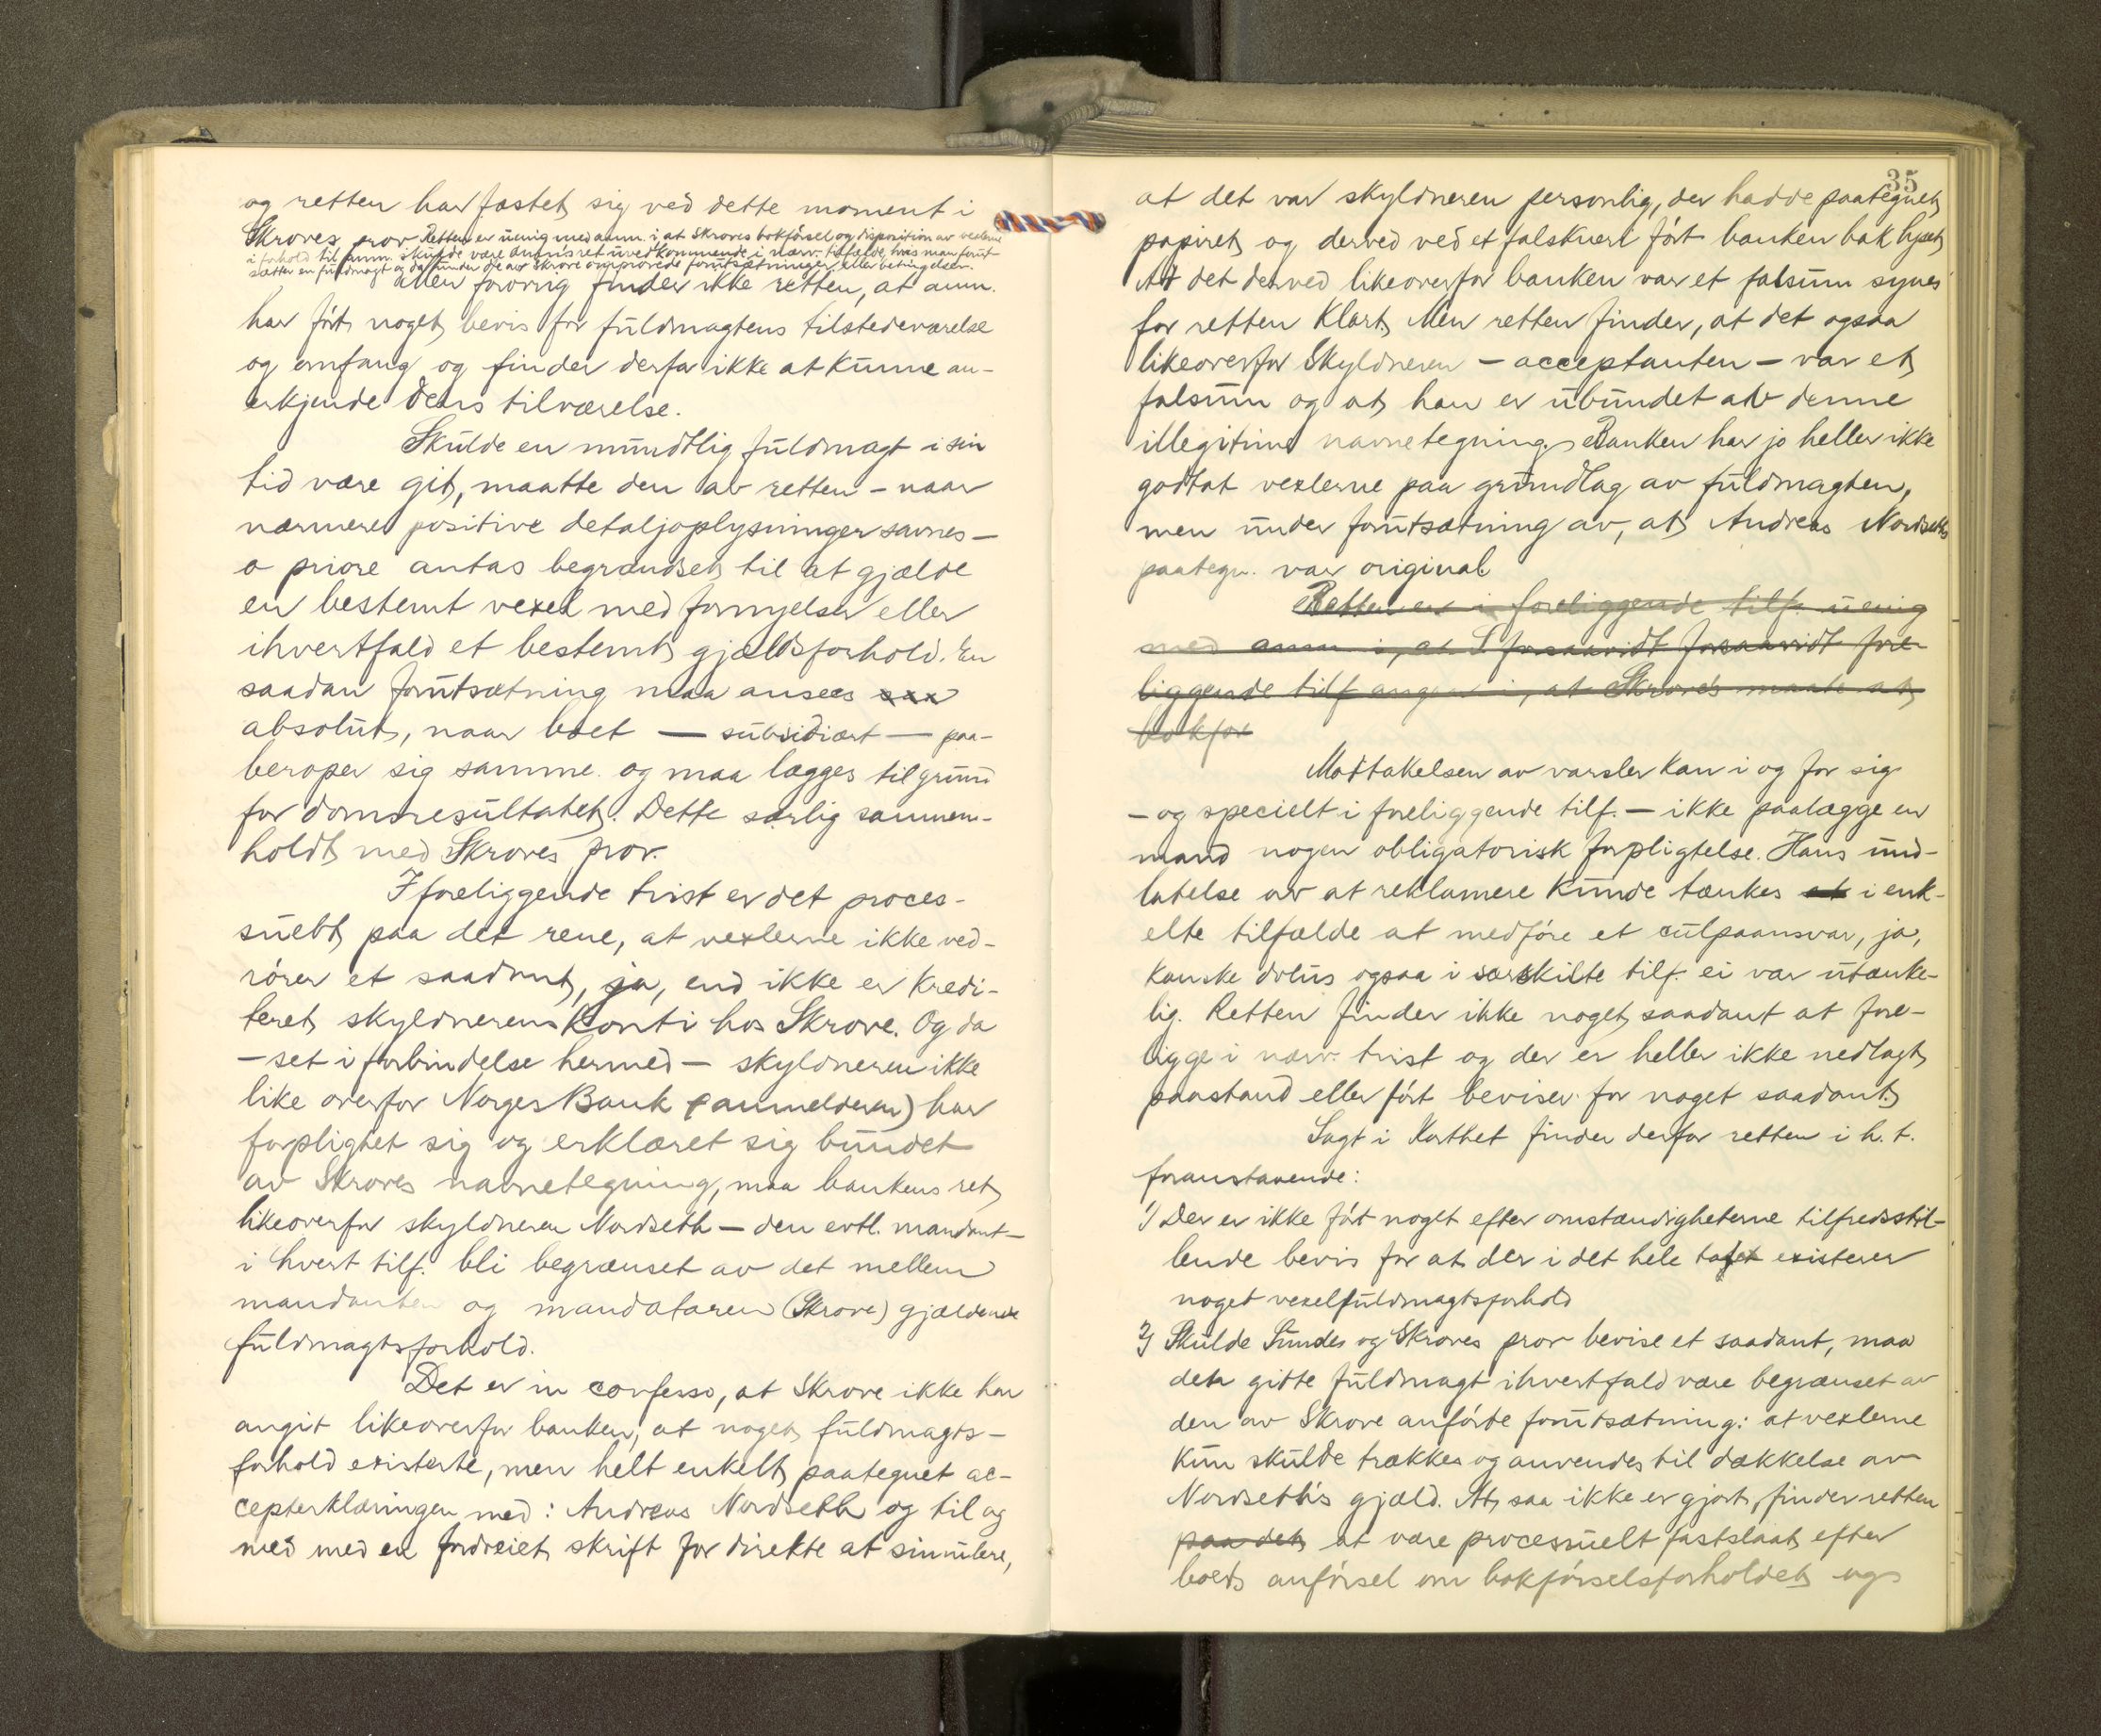 og retten har fæstet sig ved dette moment i
Skroves prov. Retten er uenig med anm. i at Skroves bokførsel og disposition av vexlerne
i forhold til anm. skulde være anm's ret uvedkommende i nærv. tilfælde, hvis man forut-
sætter en fuldmagt og de under de av Skrove forutsætninger eller betingelser.
Men forøvrig finder ikke retten, at anm.
har ført noget bevis for fuldmagtens tilstedeværelse
og omfang og finder derfor ikke at kunne an-
erkjende dens tilværelse.
Skulde en mundtlig fuldmagt i sin
tid være git, maatte den av retten - naar
nærmere positive detaljoplysninger savnes -
a priore antas begrændset til at gjælde
en bestemt vexel med fornyelser eller
ihvertfald et bestemt gjældsforhold. En
saadan forutsætning maa ansees
absolut, naar boet — subsidiært — paa-
beroper sig samme og maa lægges til grund
for domsresultatet. Dette særlig sammen-
holdt med Skroves prov.
I foreliggende tvist er det proces-
suelt paa det rene, at vexlerne ikke ved-
rører et saadant, ja, end ikke er kredi-
teret skyldnerens konti hos Skrove. Og da
- set i forbindelse hermed - skyldneren ikke
like overfor Norges Bank (anmelderen) har
forpligtet sig og erklæret sig bundet
av Skroves navnetegning, maa bankens ret
likeoverfor skyldneren Nordseth - den evtl. mandant -
i hvert tilf. bli begrænset av det mellem
mandanten og mandataren (Skrove) gjældende
fuldmagtsforhold.
Det er in confesso, at Skrove ikke har
angit likeoverfor banken, at noget fuldmagts-
forhold existerte, men helt enkelt paategnet ac-
cepterklæringen med: Andreas Nordseth og til og
med med en fordreiet skrift for direkte at simulere,
35
at det var skyldneren personlig, der hadde paategnet
papiret og derved ved et falskneri ført banken bak lyset
At det derved likeoverfor banken var et falsum synes
for retten klart. Men retten finder, at det ogsaa
likeoverfor skyldneren - acceptanten - var et
falsum og at han er ubundet av denne
illegitime navnetegning. Banken har jo heller ikke
godtat vexlerne paa grundlag av fuldmagten,
men under forutsætning av, at Andreas Nordseths
paategn. var original
Retten er i foreliggende tilf. uenig
med anm i, at S forsaavidt forsaavidt fore-
liggende tilf angaar i, at Skrove's maate at
bokføre
Mottakelsen av varsler kan i og for sig
- og specielt i foreliggende tilf. - ikke paalægge en
mand nogen obligatorisk forpligtelse. Hans und-
latelse av at reklamere kunde tænkes at i enk-
elte tilfælde at medføre et culpaansvar, ja,
kanske dolus ogsaa i særskilte tilf. ei var utænke-
lig. Retten finder ikke noget saadant at fore-
ligge i nærv. tvist og der er heller ikke nedlagt
paastand eller ført beviser for noget saadant.
Sagt i korthet finder derfor retten i h. t.
foranstaaende:
1) Der er ikke ført noget efter omstændigheterne tilfredsstil-
lende bevis for at der i det hele tat existerer
noget vexelfuldmagtsforhold
2) Skulde Sundes og Skroves prov bevise et saadant, maa
den gitte fuldmagt ihvertfald være begrænset av
den av Skrove anførte forutsætning: at vexlerne
kun skulde trækkes og anvendes til dækkelse av
Nordseth's gjæld. At saa ikke er gjort, finder retten
paa det at være processuelt fastslaat efter
boets anførsel om bokførselsforholdet og